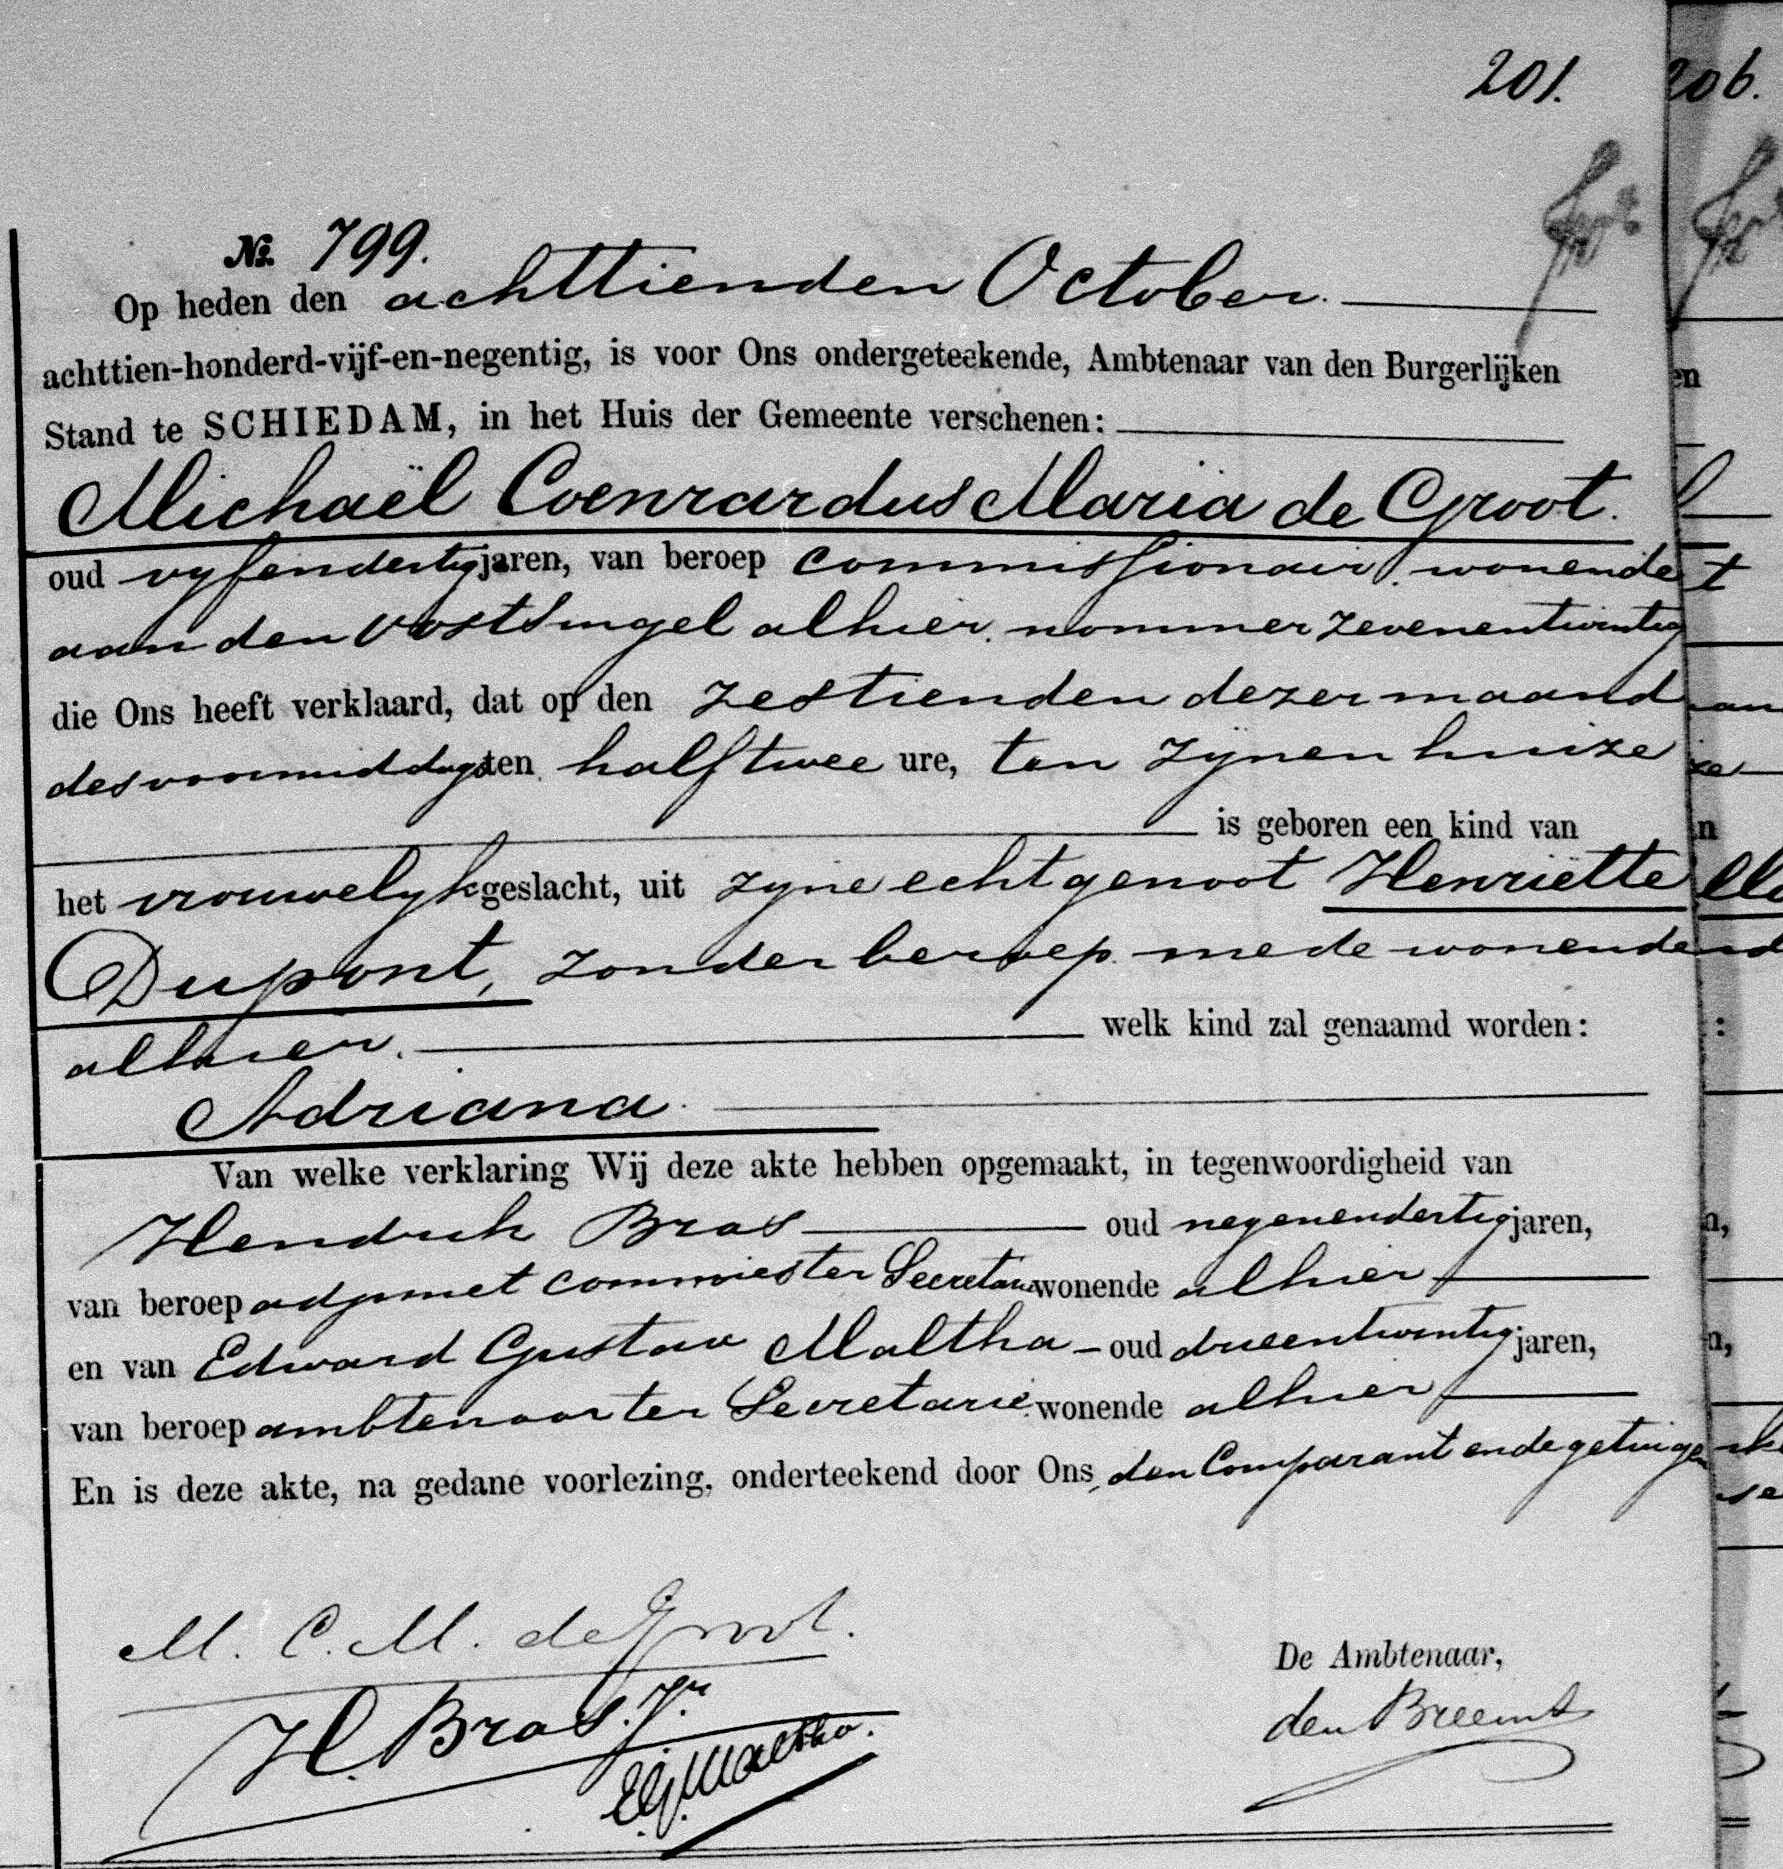 201.
№ 799.
Op heden den achttienden October.
achttien-honderd-vijf-en-negentig, is voor Ons ondergeteekende, Ambtenaar van den Burgerlijken
Stand te SCHIEDAM, in het Huis der Gemeente verschenen:
Michaël Coenrardus Maria de Groot.
oud vyfendertig jaren, van beroep commissionair, wonende
aan den Oostsingel alhier, nommer zevenentwintig
die Ons heeft verklaard, dat op den zestienden dezer maand
des voormiddags ten half twee ure, ten zynen huize
is geboren een kind van
het vrouwelyk geslacht, uit zyne echtgenoot Henriëtte
Dupont, zonder beroep mede wonende
alhier. welk kind zal genaamd worden:
Adriana.
Van welke verklaring Wij deze akte hebben opgemaakt, in tegenwoordigheid van
Hendrik Bras oud negenendertig jaren,
van beroep adjunct commies ter Secretarie wonende alhier
en van Edward Gustav Maltha - oud drieentwintig jaren,
van beroep ambtenaar ter Secretarie wonende alhier
En is deze akte, na gedane voorlezing, onderteekend door Ons, den Comparant en de getuigen
M. C. M. de Groot.
De Ambtenaar,
H. Bras. Jr.
E.G. Maltha.